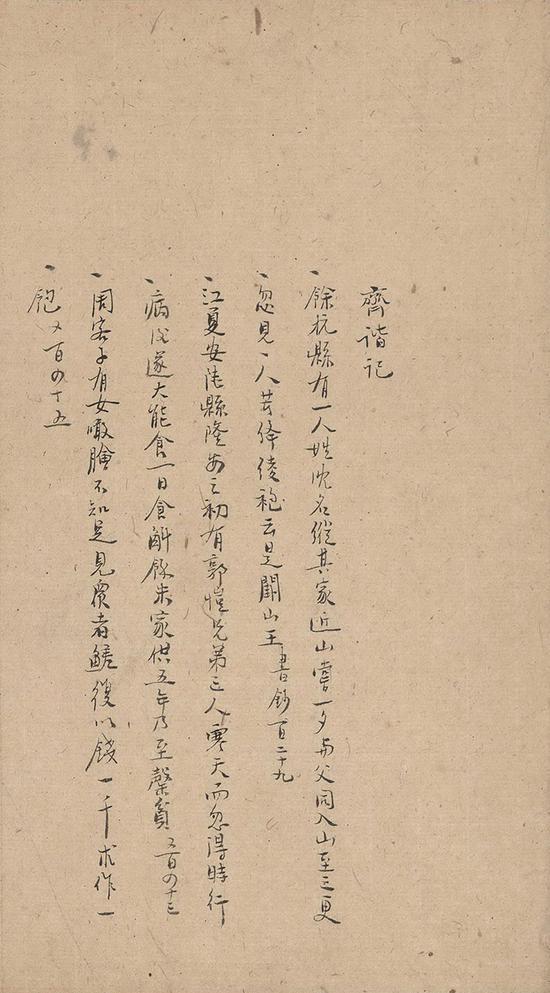 齊諧記
餘杭縣有一人姓沈名縱其家近山嘗一夕与父同入山至三更
忽見一人著絳綾袍云是鬭山王書鈔百二十九
江夏安陸縣隆安之初有郭兄弟三人寒天而忽得時行
病後遂大能食一日食斛餘米家供五年乃至罄貧又百四十三
周客子有女噉膾不知足見者復以錢一千求作一
飽又百四十五